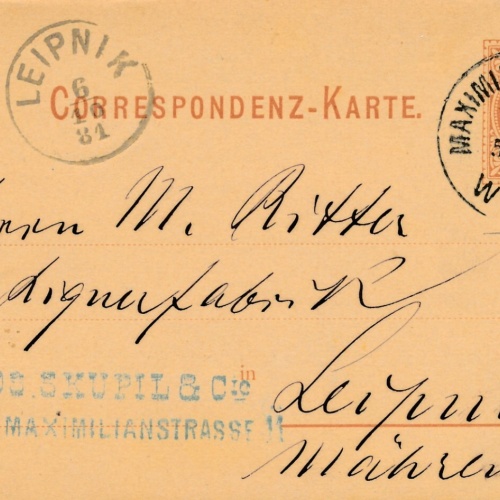 LEIPNIK
6
10
81
CORRESPONDENZ-KARTE.
MAXIMI
W
Herrn M. Ritter
Liqueurfabrik
OS. SKUPIL & Cie
MAXIMILIANSTRASSE 11
in
Leipni
Mähren